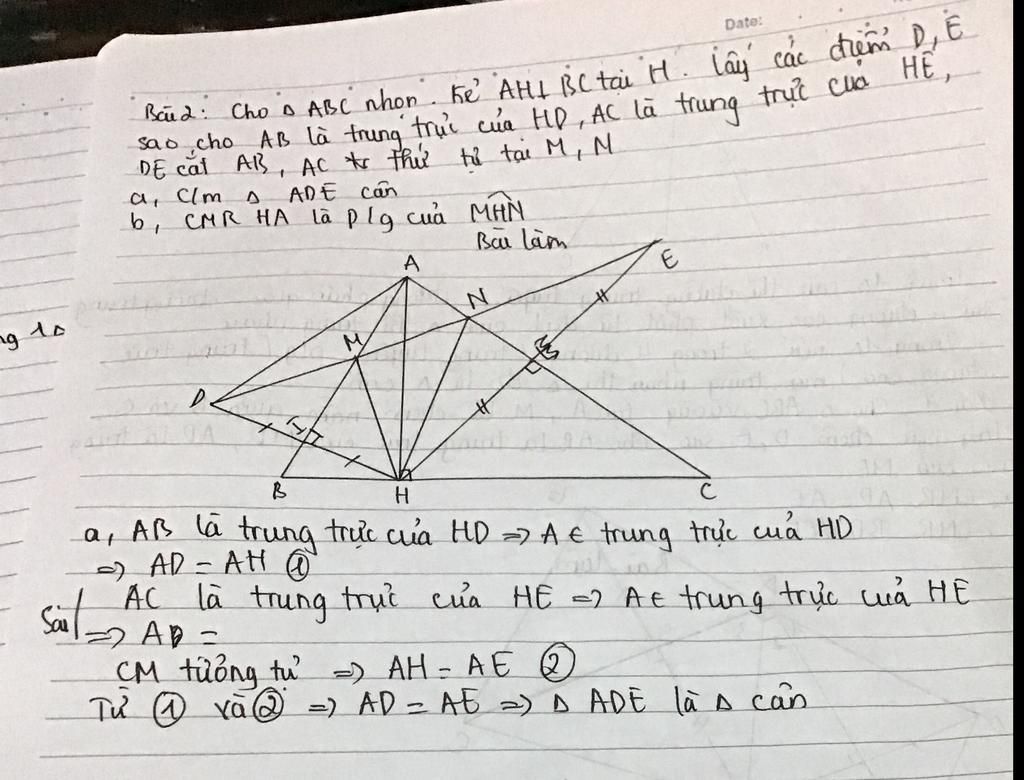 Date:
Bài 2: Cho Δ ABC nhọn. Kẻ AH⊥BC tại H. Lấy các điểm D, E
sao cho AB là trung trực của HD, AC là trung trực của HE,
DE cắt AB, AC thứ tự tại M, N
a, C/m Δ ADE cân
b, CMR HA là p/g của MHN
Bài làm
A
E
N
M
D
I
B
H
C
a, AB là trung trực của HD => A ∈ trung trực của HD
=> AD = AH ①
AC là trung trực của HE => A ∈ trung trực của HE
Sai => AD =
CM tương tự => AH = AE ②
Từ ① và ② => AD = AE => Δ ADE là Δ cân